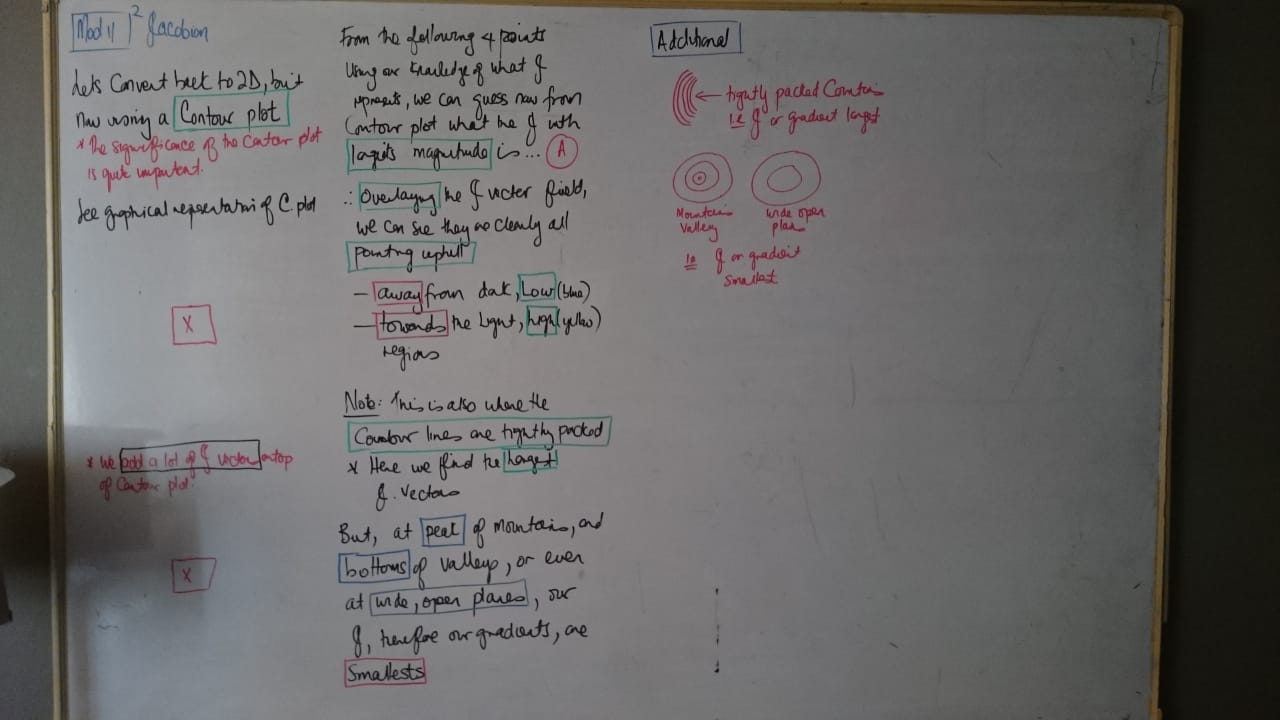 Mod 11 )² Jacobian
Lets Convert back to 2D, but
Now using a Contour plot
* The significance of the Contour plot
is quite important.
See graphical representation of C. plot
X
* we add a lot of J vector ontop
of Contour plot.
X
From the following 4 points
Using our knowledge of what J
represents, we can guess now from
Contour plot what the J with
largests magnitude is... A
∴ Overlaying the J vector field,
we can see they are clearly all
pointing uphill
– away from dark, Low (blue)
– towards the Light, high (yellow)
regions
Note: This is also where the
Contour lines are tightly packed
* Here we find the largest
J. Vectors
But, at peak of Mountains, and
bottoms of valleys, or even
at wide, open planes, our
J, therefore our gradients, are
Smallests
Additional
← tightly packed Contours
ie J or gradient largest
Mountains
Valley
wide open
plain
ie J or gradient
smallest